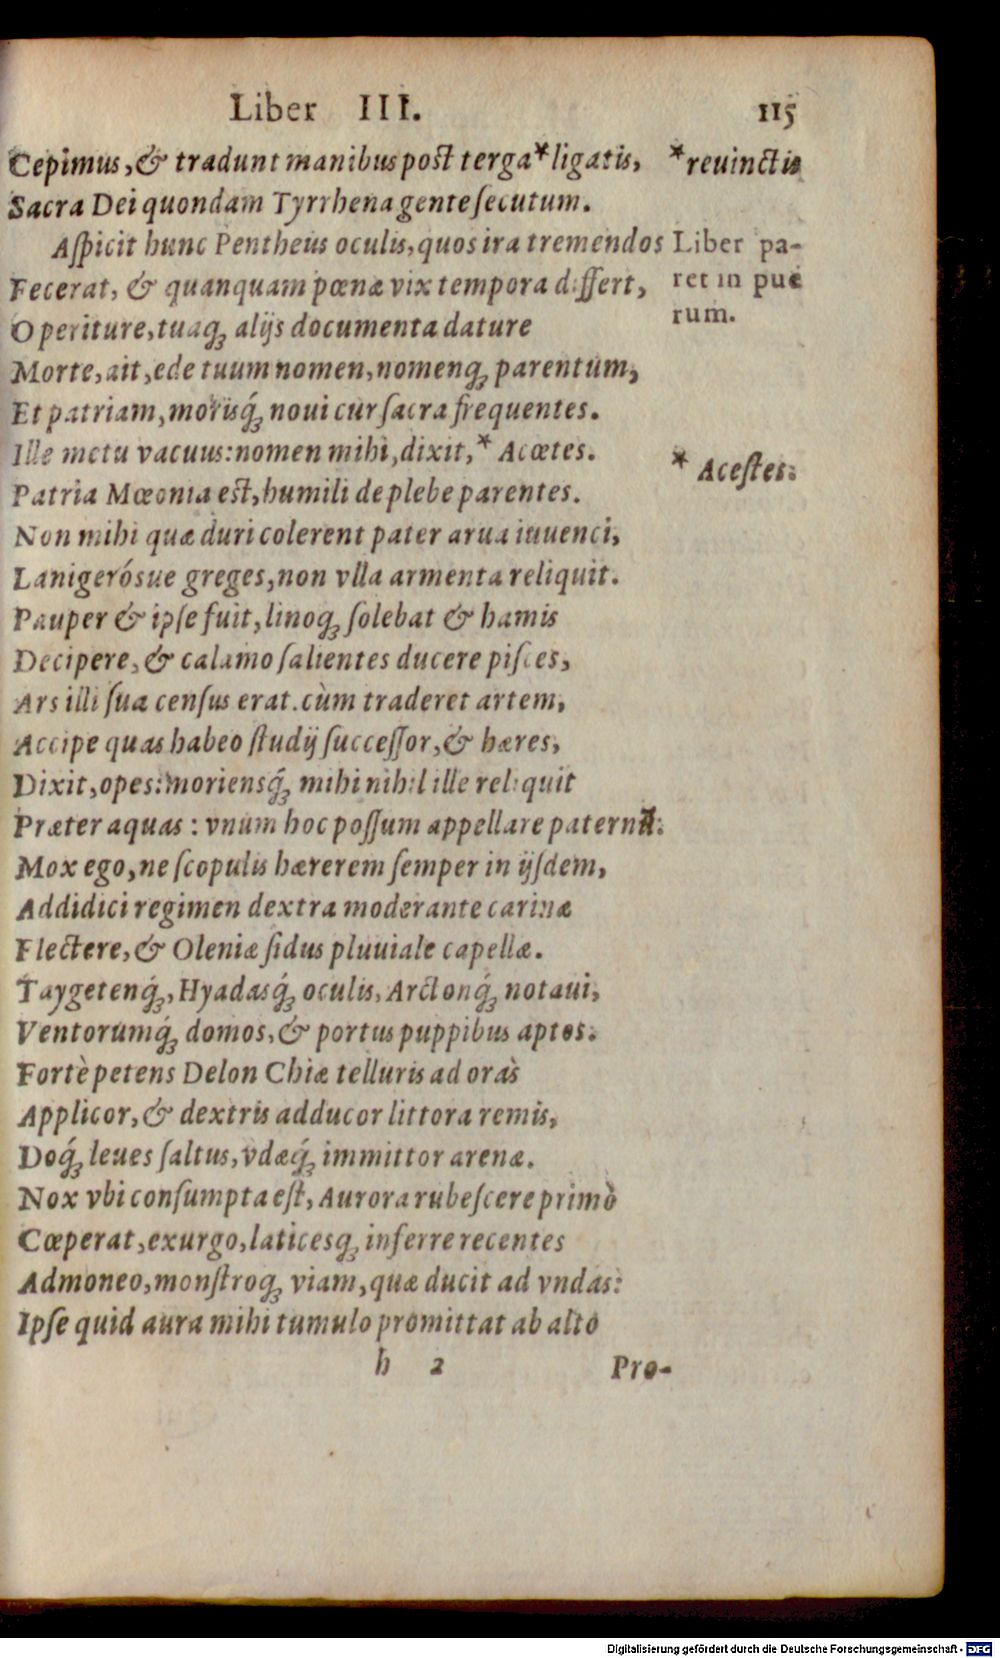 Liber III. 115
Cepimus,& tradunt manibus post terga*ligatis, *reuinctis
Sacra Dei quondam Tyrrhena gente ſecutum.
Aſpicit hunc Pentheus oculis,quos ira tremendos
Liber pa-
ret in pue
rum.
Fecerat, & quanquam pœnæ vix tempora differt,
O periture,tuaq́ꝫ alijs documenta dature
Morte,ait,ede tuum nomen,nomenqꝫ parentum,
Et patriam,morisq́ꝫ noui cur ſacra frequentes.
Ille metu vacuus:nomen mihi,dixit,* Acœtes.
* Aceſtes.
Patria Mœonia eſt,humili de plebe parentes.
Non mihi quæ duri colerent pater arua iuuenci,
Lanigerósue greges,non vlla armenta reliquit.
Pauper & ipſe fuit,linoqꝫ ſolebat & hamis
Decipere,& calamo ſalientes ducere piſces,
Ars illi ſua cenſus erat.cùm traderet artem,
Accipe quas habeo ſtudij ſucceſſor,& hæres,
Dixit,opes:moriensq́ꝫ mihi nihil ille reliquit
Præter aquas : vnum hoc poſſum appellare paternũ.
Mox ego,ne ſcopulis hærerem ſemper in ijſdem,
Addidici regimen dextra moderante carinæ
Flectere,& Oleniæ ſidus pluuiale capellæ.
Taygetenq́ꝫ,Hyadasq́ꝫ oculis,Arctonq́ꝫ notaui,
Ventorumq́ꝫ domos,& portus puppibus aptos.
Fortè petens Delon Chiæ telluris ad oras
Applicor,& dextris adducor littora remis,
Doq́ꝫ leues ſaltus,vdæq́ꝫ immittor arenæ.
Nox vbi conſumpta eſt, Aurora rubeſcere primò
Cœperat,exurgo,laticesqꝫ inferre recentes
Admoneo,monſtroqꝫ viam,quæ ducit ad vndas:
Ipſe quid aura mihi tumulo promittat ab alto
h 2 Pro-
Digitalisierung gefördert durch die Deutsche Forschungsgemeinschaft - DFG